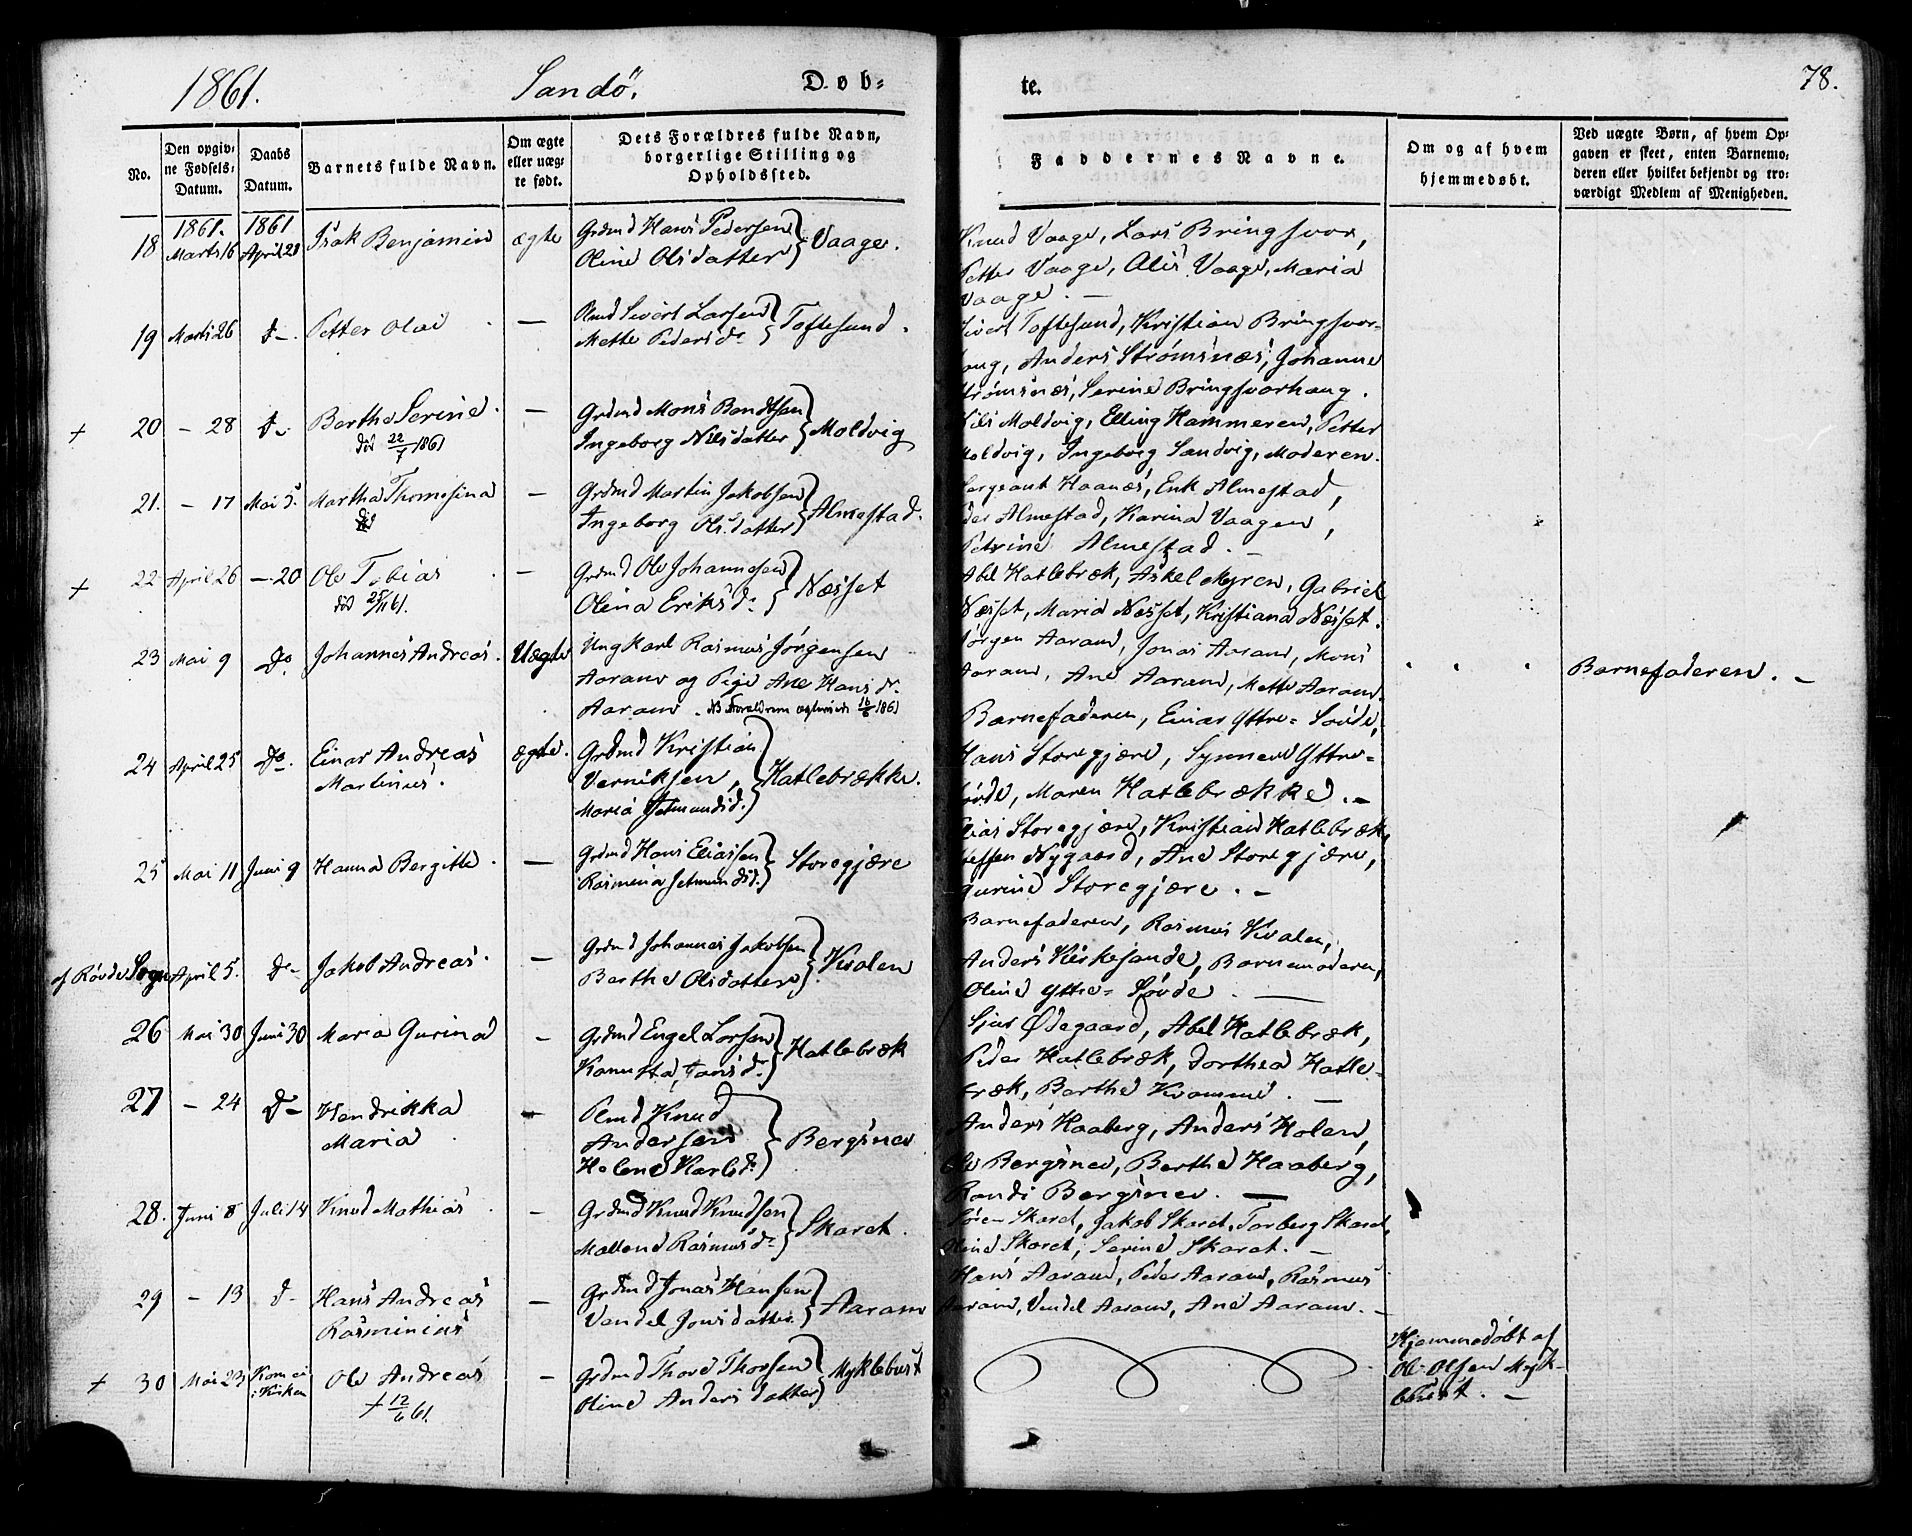 1861. Sandö. Døb-
te. 78.
No.
Den opgiv-
ne Fødsels-
Datum.
Daabs
Datum.
Barnets fulde Navn.
Om ægte
eller uæg-
te født.
Dets Forældres fulde Navn,
borgerlige Stilling og
Opholdssted.
Faddernes Navne.
Om og af hvem
hjemmedøbt.
Ved uægte Børn, af hvem Op-
gaven er skeet, enten Barnemo-
deren eller hvilket bekjendt og tro-
værdigt Medlem af Menigheden.
1861. 1861
18 Marts 16 April 28 Isak Benjamin ægte Grdmd Hans Pedersen
Oline Olsdatter } Vaage.
Knud Vaage, Lars Bringsvor,
Petter Vaage, Alis Vaage, Maria
Vaage. —
19 Marts 26 d— Petter Olai — Plmd Sivert Larsen
Mette Pedersd. } Toftesund.
Sivert Toftesund, Kristian Bringsvor-
haug, Anders Strømsnæs, Johanne
Strømsnæs, Serine Bringsvorhaug.
+ 20 — 28 d— Berthe Serine. — Grdmd Mons Bendtsen
død 22/7 1861
Ingeborg Nilsdatter } Moldvig
Nils Moldvig, Elling Hammeren, Petter
Moldvig, Ingeborg Sandvig, Moderen.
21. — 17 Mai 5. Martha Thomasina — Grdmd Martin Jakobsen
Ingeborg Olsdatter } Almestad.
Sergeant Haanæs, Erik Almestad,
Peder Almestad, Karina Vaagen,
Petrine Almestad. —
+ 22 April 26 — 20 Ole Tobias — Grdmd Ole Johannesen
død 25/11 61.
Olina Eriksd. } Næsset
Abel Hatlebræk, Askel Myren, Gabriel
Næsset, Maria Næsset, Kristiana Næsset.
23 Mai 9 Do Johannes Andreas. Uægte Ungkarl Rasmus Jørgensen
Aaram og Pige Ane Hansdr.
Aaram. NB Forældrene ægteviede 16/6 1861
Jørgen Aaram, Jonas Aaram, Mons
Aaram, Ane Aaram, Mette Aaram.
Barnefaderen. —
24 April 25 Do. Einar Andreas ægte. Grdmd Kristian
Martinus.
Verniksen,
Maria Jetmundsd. } Hatlebrække.
Barnefaderen, Einar Yttre-Søvde,
Hans Storegjære, Synneve Yttre-
Søvde, Maren Hatlebrække. —
25 Mai 11 Juni 9 Hanna Bergitte. — Grdmd Hans Eliassen
Rasmine Jetmundsd. } Storegjære
Elias Storegjære, Kristian Hatlebræk,
Steffen Nygaard, Ane Storegjære,
Gurine Storegjære. —
af Rövde Sogn April 5. d— Jakob Andreas. — Grdmd Johannes Jakobsen
Berthe Olsdatter } Kvalen
Barnefaderen, Rasmus Kvalen,
Anders Kirkesande, Barnemoderen,
Oline Yttre-Søvde. —
26 Mai 30 Juni 30 Maria Gurina — Grdmd Engel Larsen
} Hatlebræk
Sjur Ødegaard, Abel Hatlebræk,
Peder Hatlebræk, Dorthea Hatle-
bræk, Berthe Kvamme. —
27 — 24 d— Hendrikka — Plmd Knud
Maria
Andersen
Helene Karlsd. } Bergsnev
Anders Haaberg, Anders Holen,
Ole Bergsnev, Berthe Haaberg,
Randi Bergsnev. —
28. Juni 8 Juli 14 Knud Mathias — Grdmd Knud Knudsen
Mallene Rasmusd. } Skaret.
Søren Skaret, Jakob Skaret, Torberg Skaret,
Oline Skaret, Serine Skaret. —
29 — 13 d— Hans Andreas — Grdmd Jonas Hansen
Rasminius
Vendel Jonsdatter } Aaram
Hans Aaram, Peder Aaram, Rasmus
Aaram, Vendel Aaram, Ane Aaram. —
+ 30 Mai 23 Kom ei
i Kirken Ole Andreas — Grdmd Thore Thorsen
+ 12/6 61.
Oline Andersdatter } Myklebust
Hjemmedøbt af
Ole Olsen Myk-
lebust. —